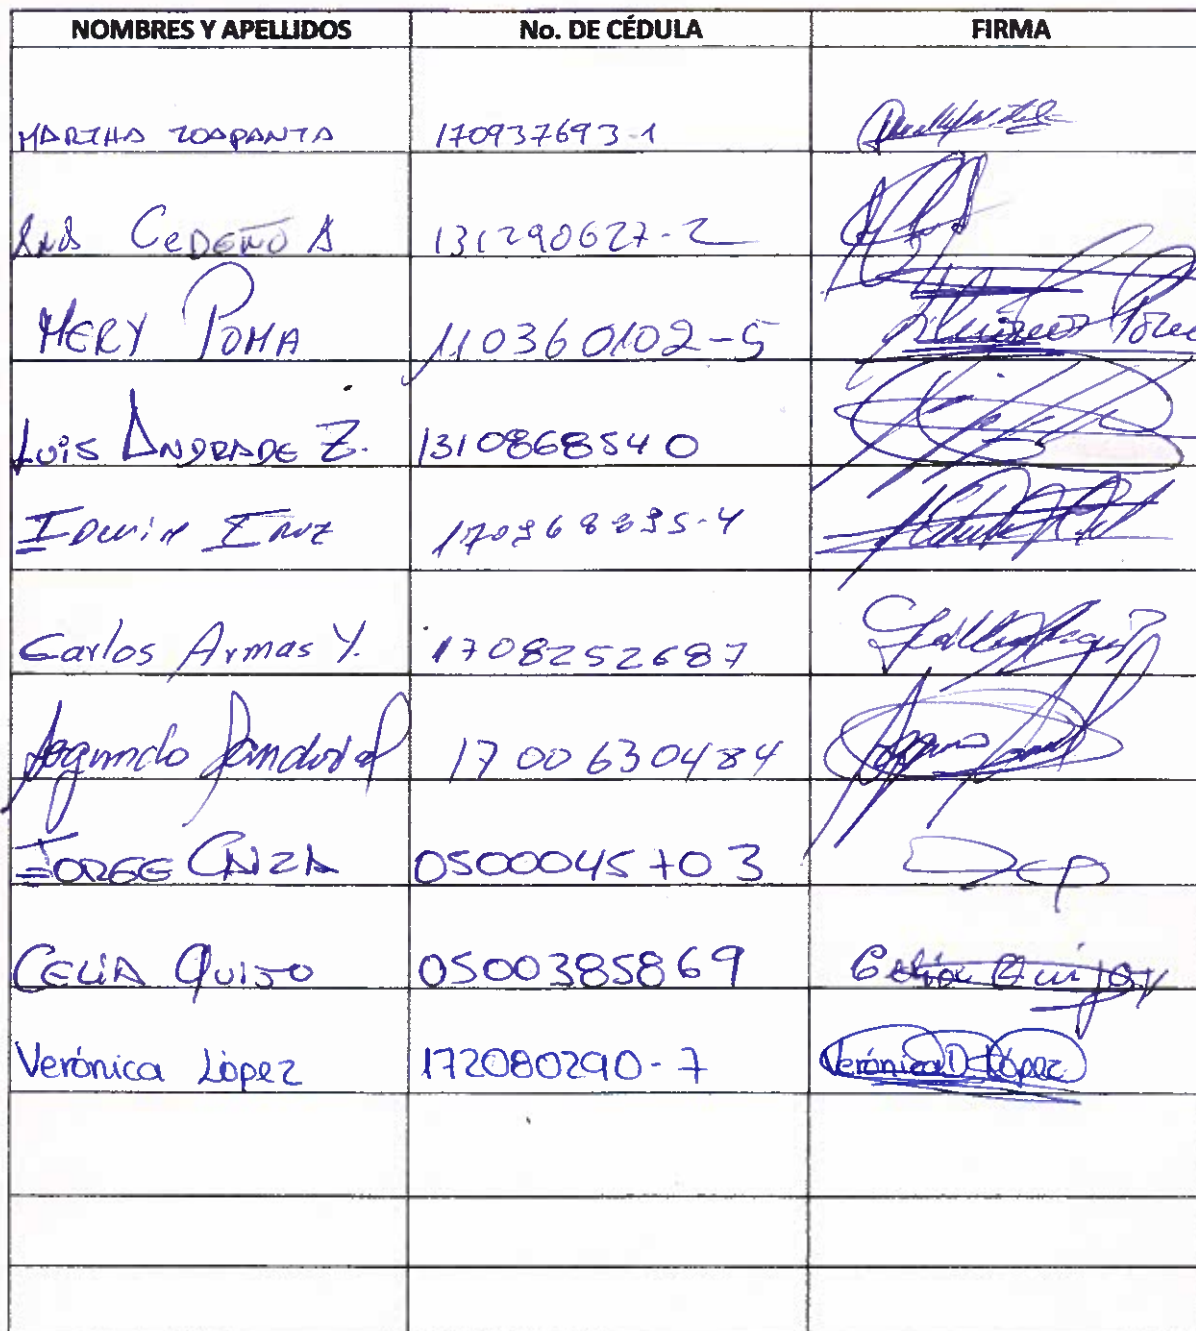 NOMBRES Y APELLIDOS No. DE CÉDULA FIRMA
MARTHA TOAPANTA 170937693-1
ANA CEDEÑO A 131290627-2
MERY POMA 110360102-5
LUIS ANDRADE Z. 1310868540
170968895-4
Carlos Armas Y. 1708252687
Segundo Sandoval 1700630484
JORGE CAIZA 0500045703
CELIA QUIJO 0500385869 Celia Quijo
Verónica López 172080290-7 Verónica D. López